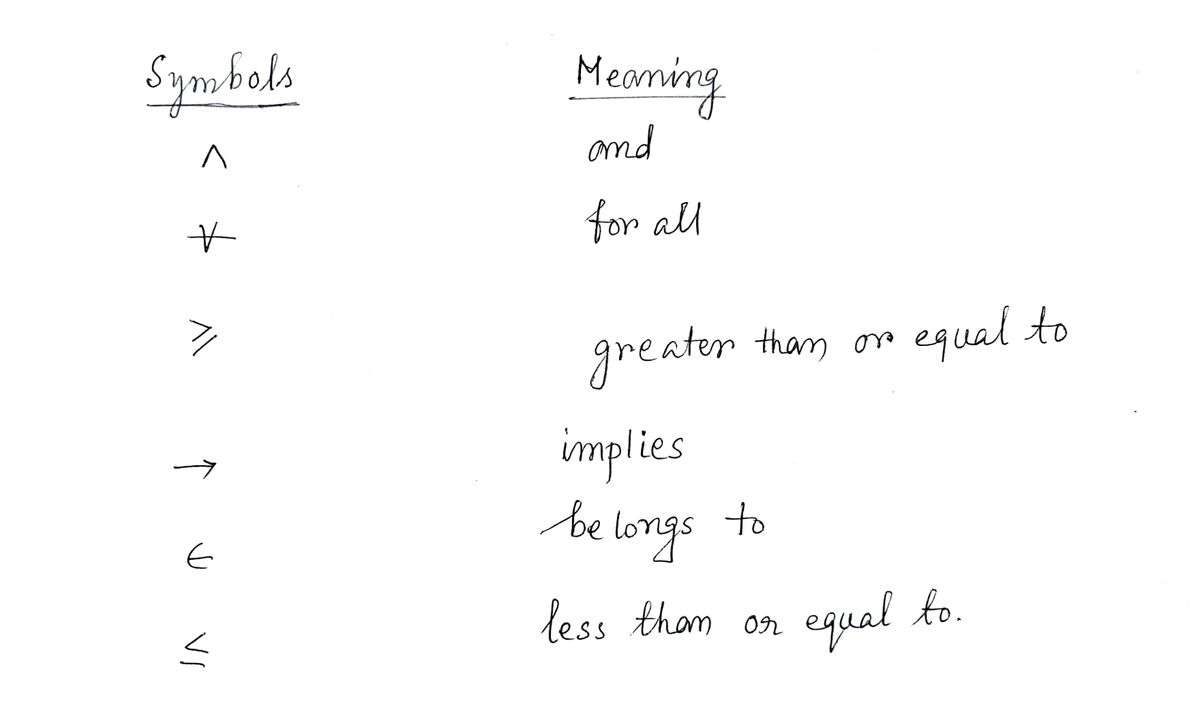 Symbols Meaning
∧ and
∀ for all
⩾ greater than or equal to
→ implies
∈ belongs to
≤ less than or equal to.